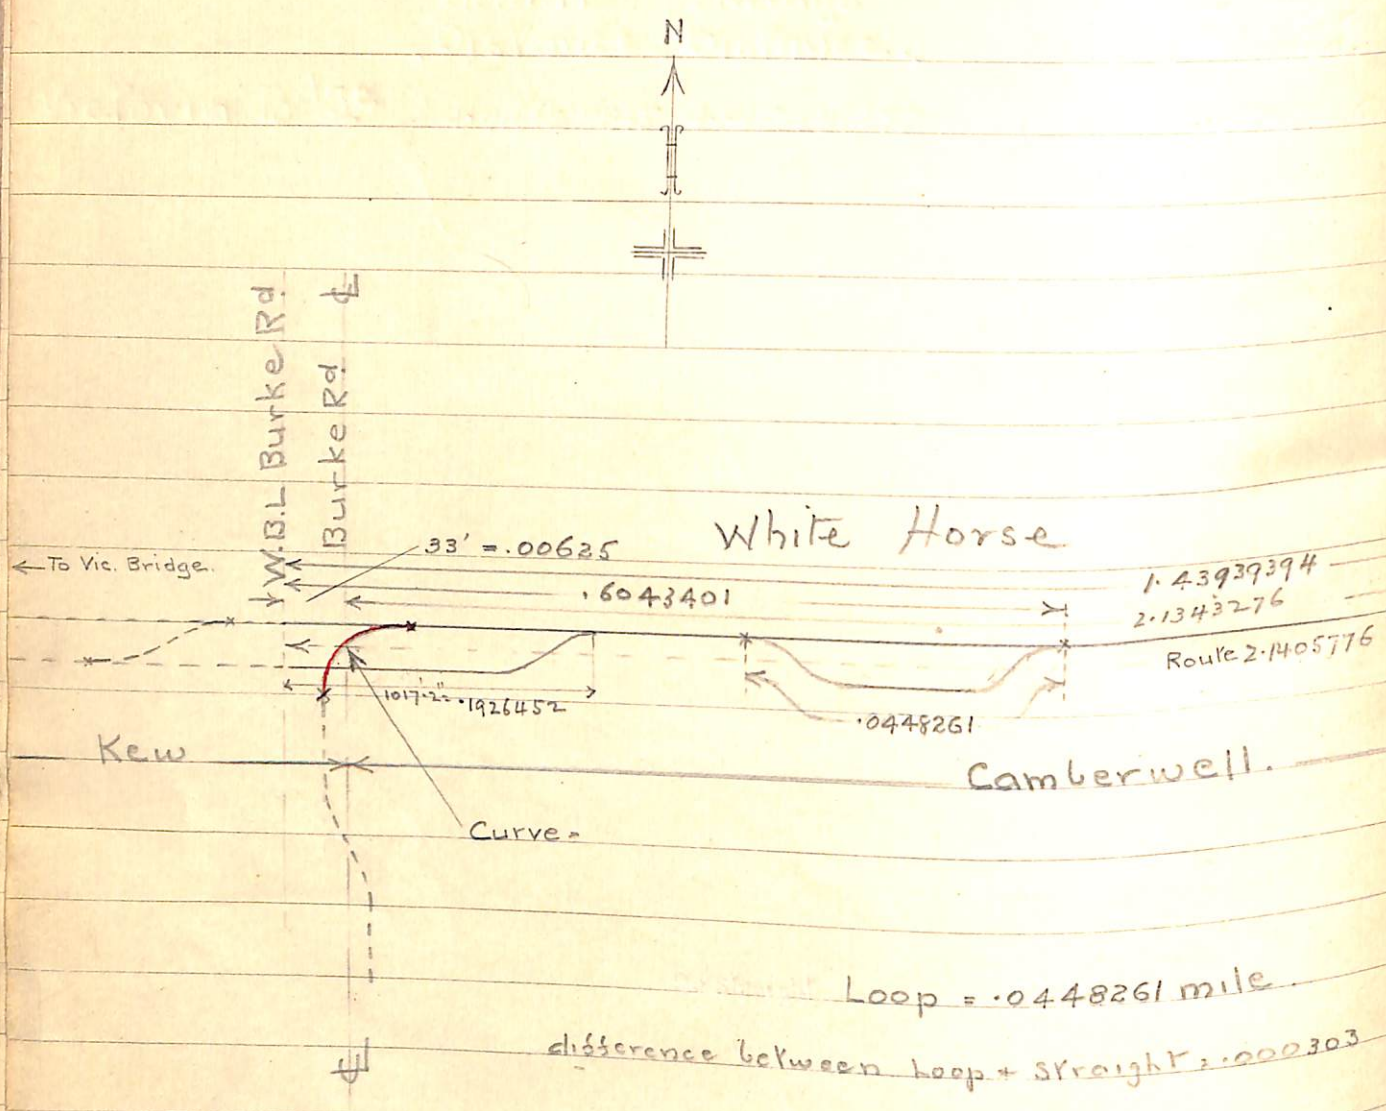 N
W.B.L Burke Rd.
Burke Rd
℄
33' = .00625
White Horse
← To Vic. Bridge.
1.43939394
.6043401
2.1343276
Route 2.1405776
1017'.2" = .1926452
.0448261
Kew
Camberwell.
Curve =
℄
Loop = .0448261 mile.
difference between Loop + Straight = .000303